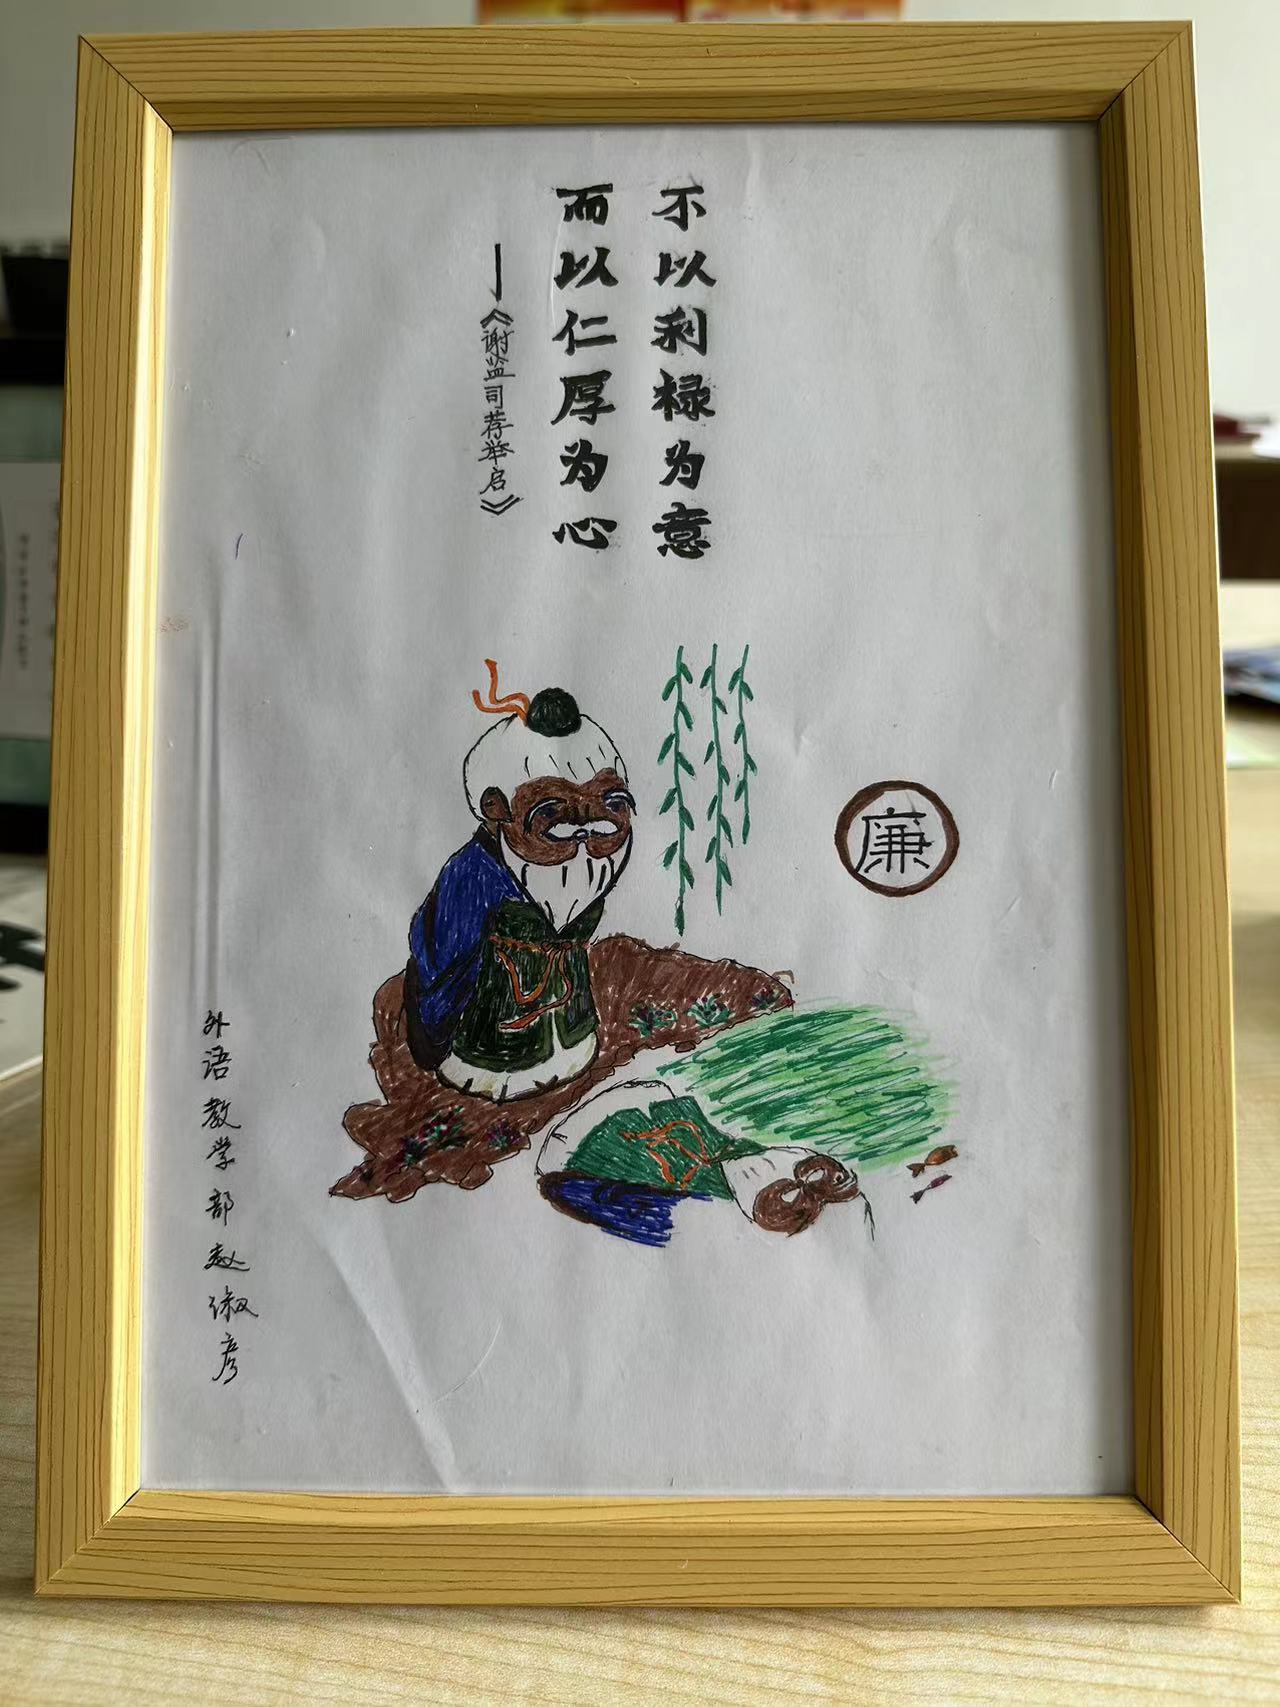 不以利禄为意
而以仁厚为心
—《谢监司荐举启》
廉
外语教学部赵淑彦